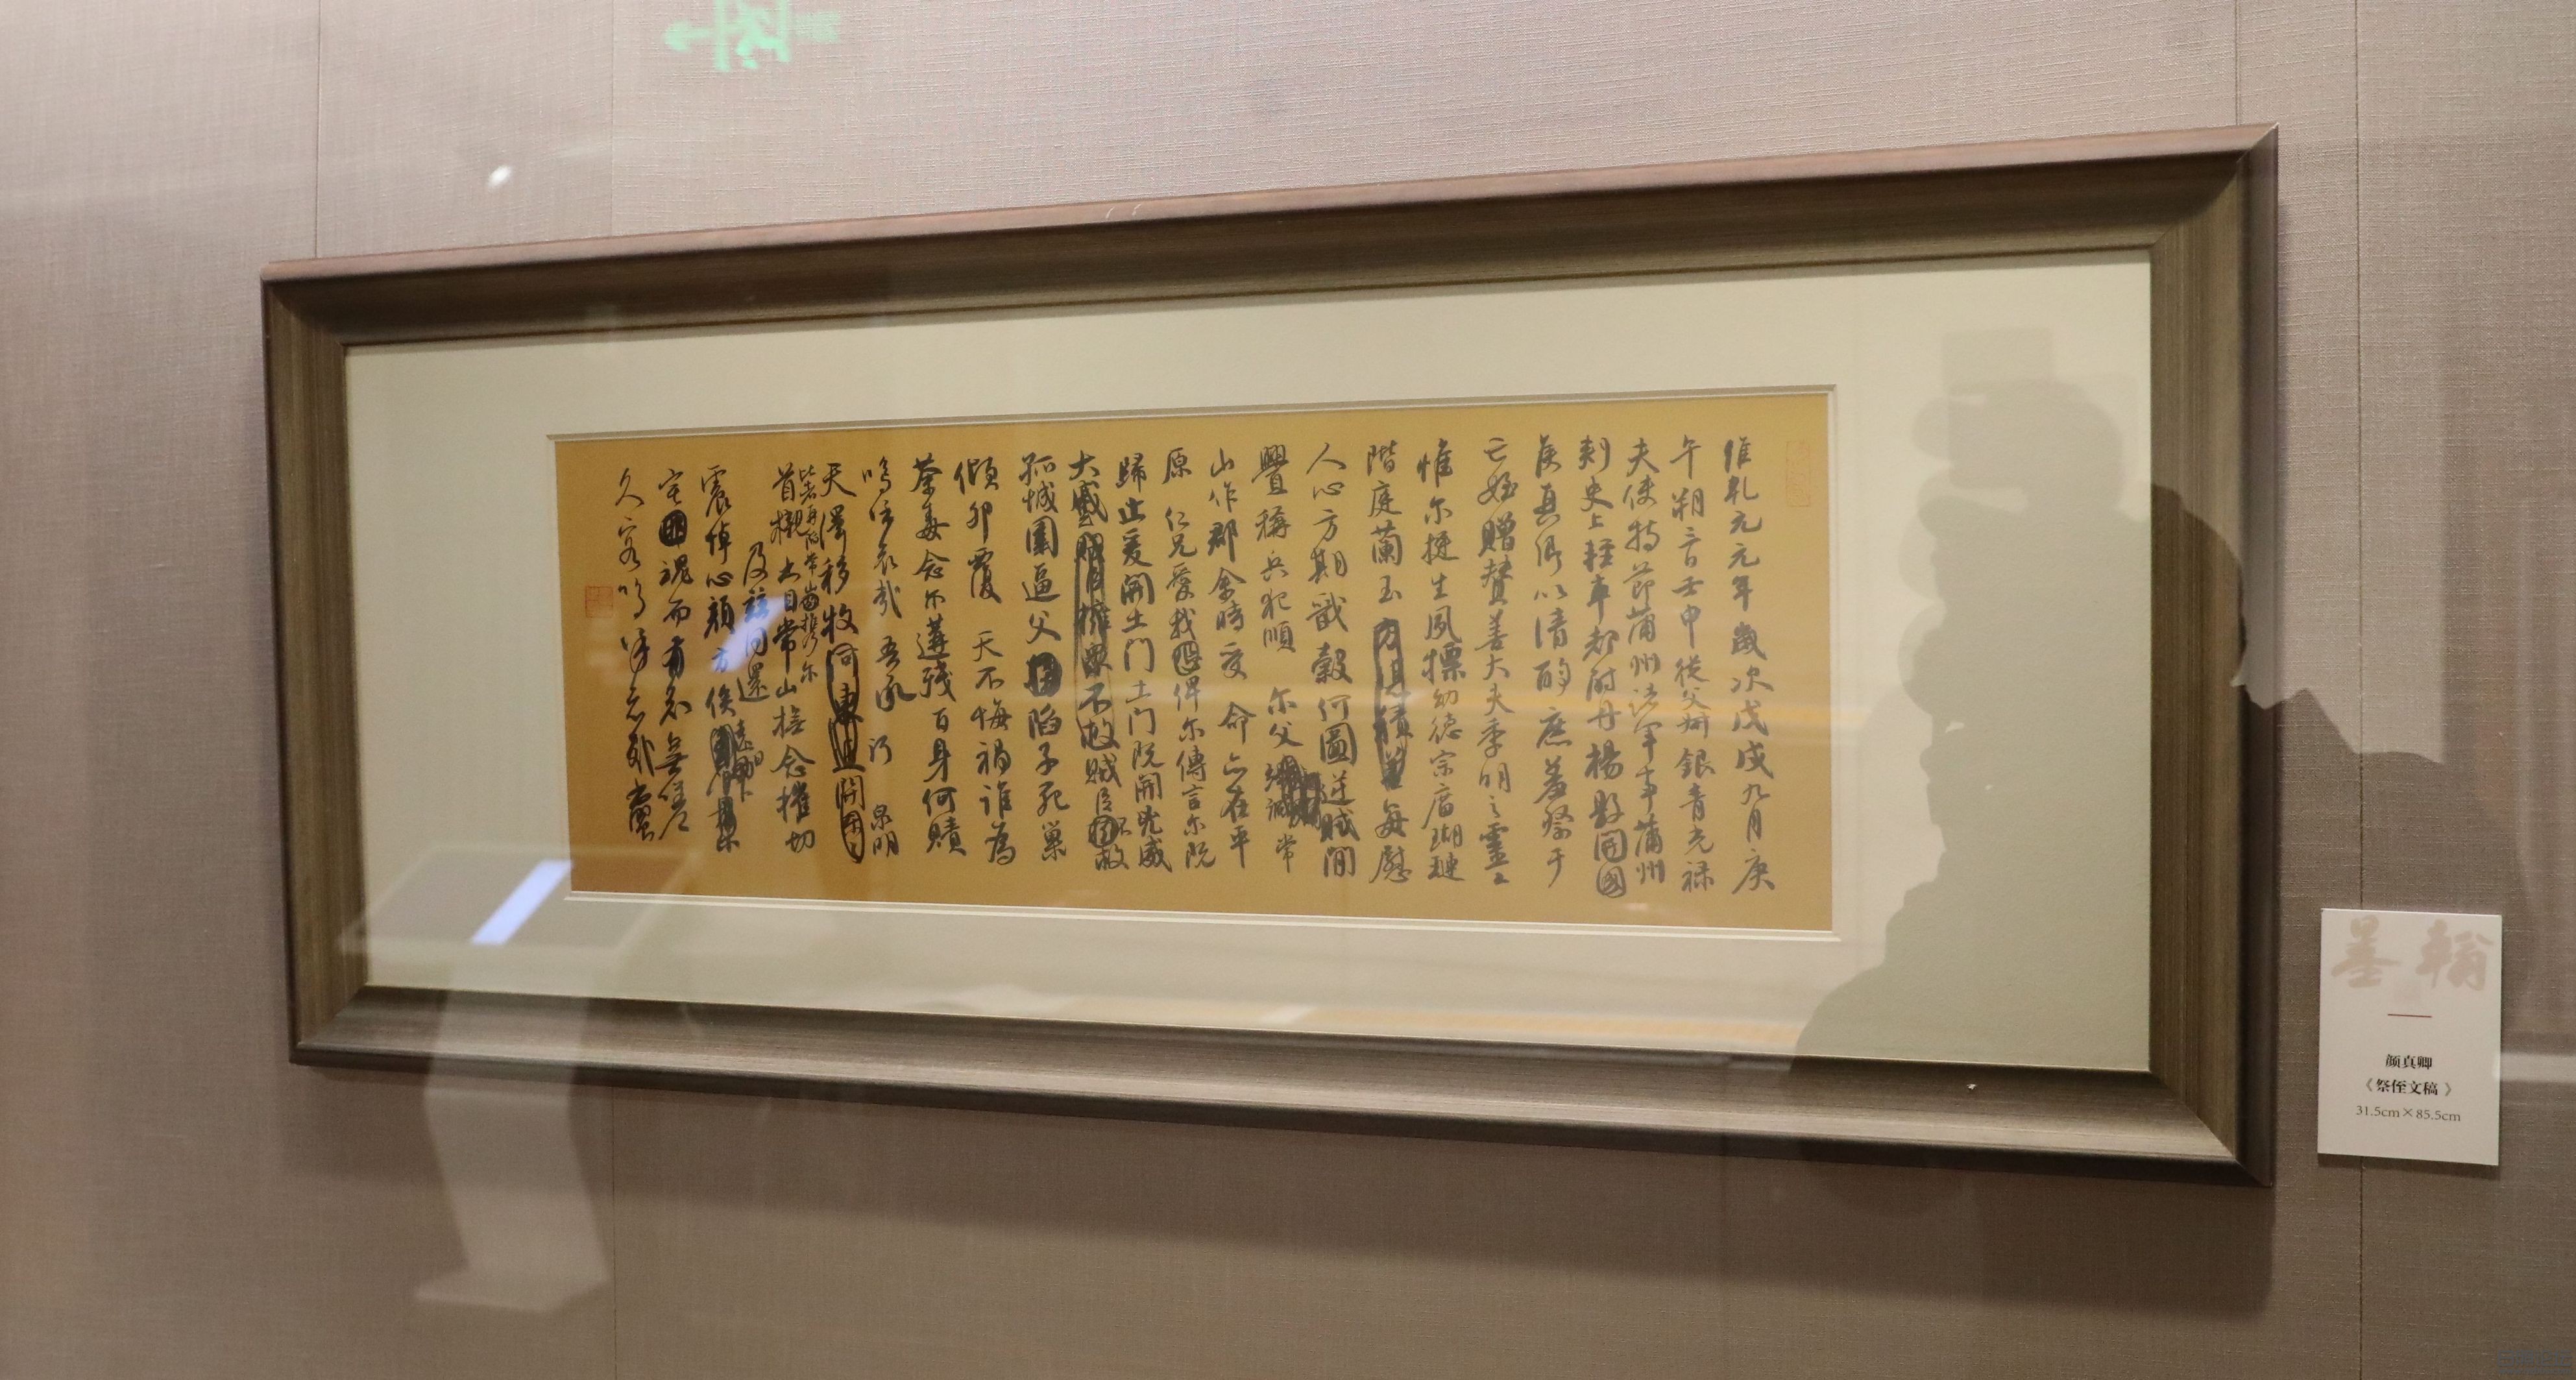 維乾元元年歲次戊戌九月庚
午朔三日壬申從父銀青光禄
夫使特節蒲州諸軍事蒲州
刺史上輕車都尉丹楊縣開國
侯真卿以清酌庶羞祭于
亡姪贈贊善大夫季明之靈
惟尔挺生夙標幼德宗廟瑚璉
階庭蘭玉每慰
人心方期戩穀何圖逆賊間
釁稱兵犯順 尔父竭誠常
山作郡余時受命亦在平
原 仁兄愛我俾尔傳言尔既
歸止爰開土門土門既開兇威
大蹙賊臣不救
孤城圍逼父陷子死巢
傾卵覆 天不悔禍誰為
荼毒念尔遘殘百身何贖
嗚呼哀哉 吾承 泉明
天澤移牧
首櫬及茲同還撫念摧切
震悼心顏方俟
宅魂而有知無嗟
久客嗚呼哀哉尚饗
翰墨
颜真卿
《祭侄文稿》
31.5cm×85.5cm